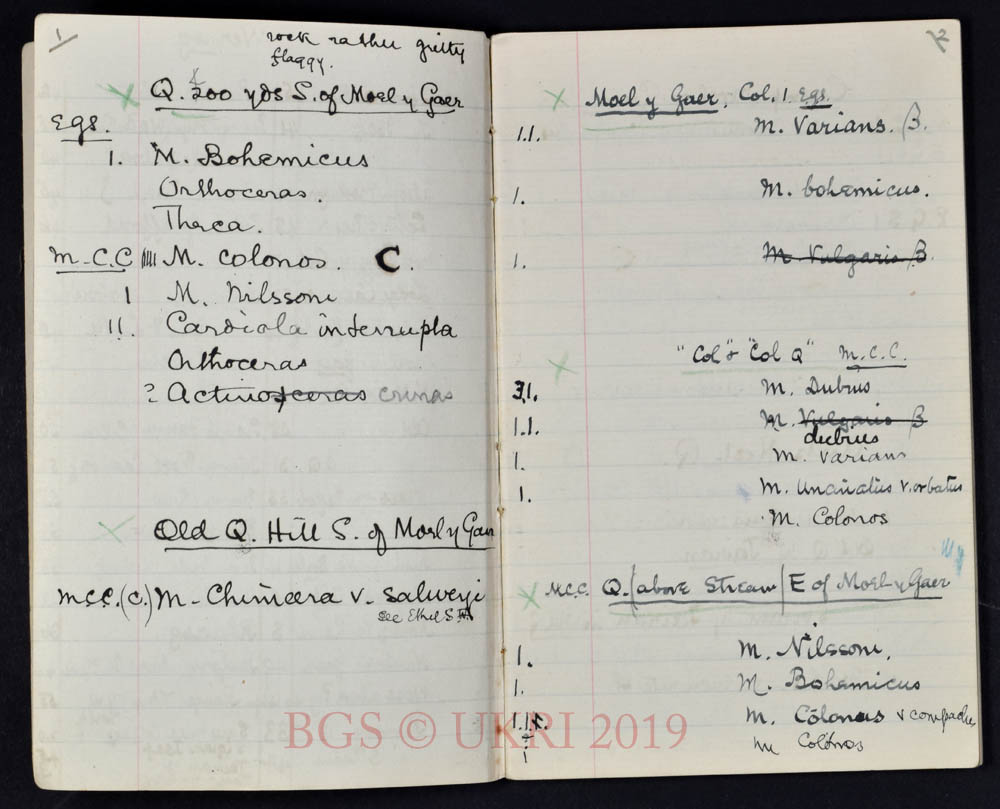 1
rock rather gritty
flaggy.
Q. 200 yds S. of Moel y Gaer
Egs.
1. M. Bohemicus
Orthoceras.
Theca.
M.C.C |||| M. Colonos. C.
1 M. Nilssoni
11. Cardiola interrupta
Orthoceras
? Actinoceras crinas
Old Q. Hill S. of Moel y Gaer
M.C.C. (C.) M. Chimaera v. Salweyi
see Ethel S.
2
Moel y Gaer, Col. 1 Egs.
1.1. M. Varians. β.
1. M. bohemicus.
1. M. Vulgaris β.
"Col" & "Col Q" M.C.C.
3.1. M. Dubius
1.1. M. Vulgaris β
dubius
1. M. Varians
1. M. Uncinatus v. orbatus
M. Colonos
M.C.C. Q. (above stream) E of Moel y Gaer
1. M. Nilssoni.
1. M. Bohemicus
1.1. M. Colonus v compactus
1 M Colonos
BGS © UKRI 2019